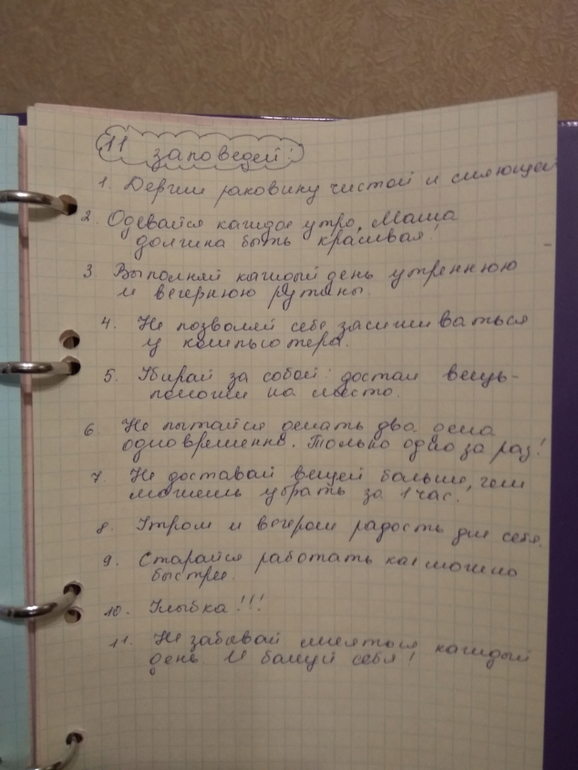 11 заповедей!
1. Держи раковину чистой и сияющей
2. Одевайся каждое утро. Маша
должна быть красивая!
3. Выполняй каждый день утреннюю
и вечернюю рутины.
4. Не позволяй себе засиживаться
у компьютера.
5. Убирай за собой достал вещь-
положи на место.
6. Не пытайся делать два дела
одновременно. Только одно за раз!
7. Не доставай вещей больше, чем
можешь убрать за 1 час.
8. Утром и вечером радость для себя.
9. Старайся работать как можно
быстрее.
10. Улыбка!!!
11. Не забывай смеяться каждый
день. И балуй себя!